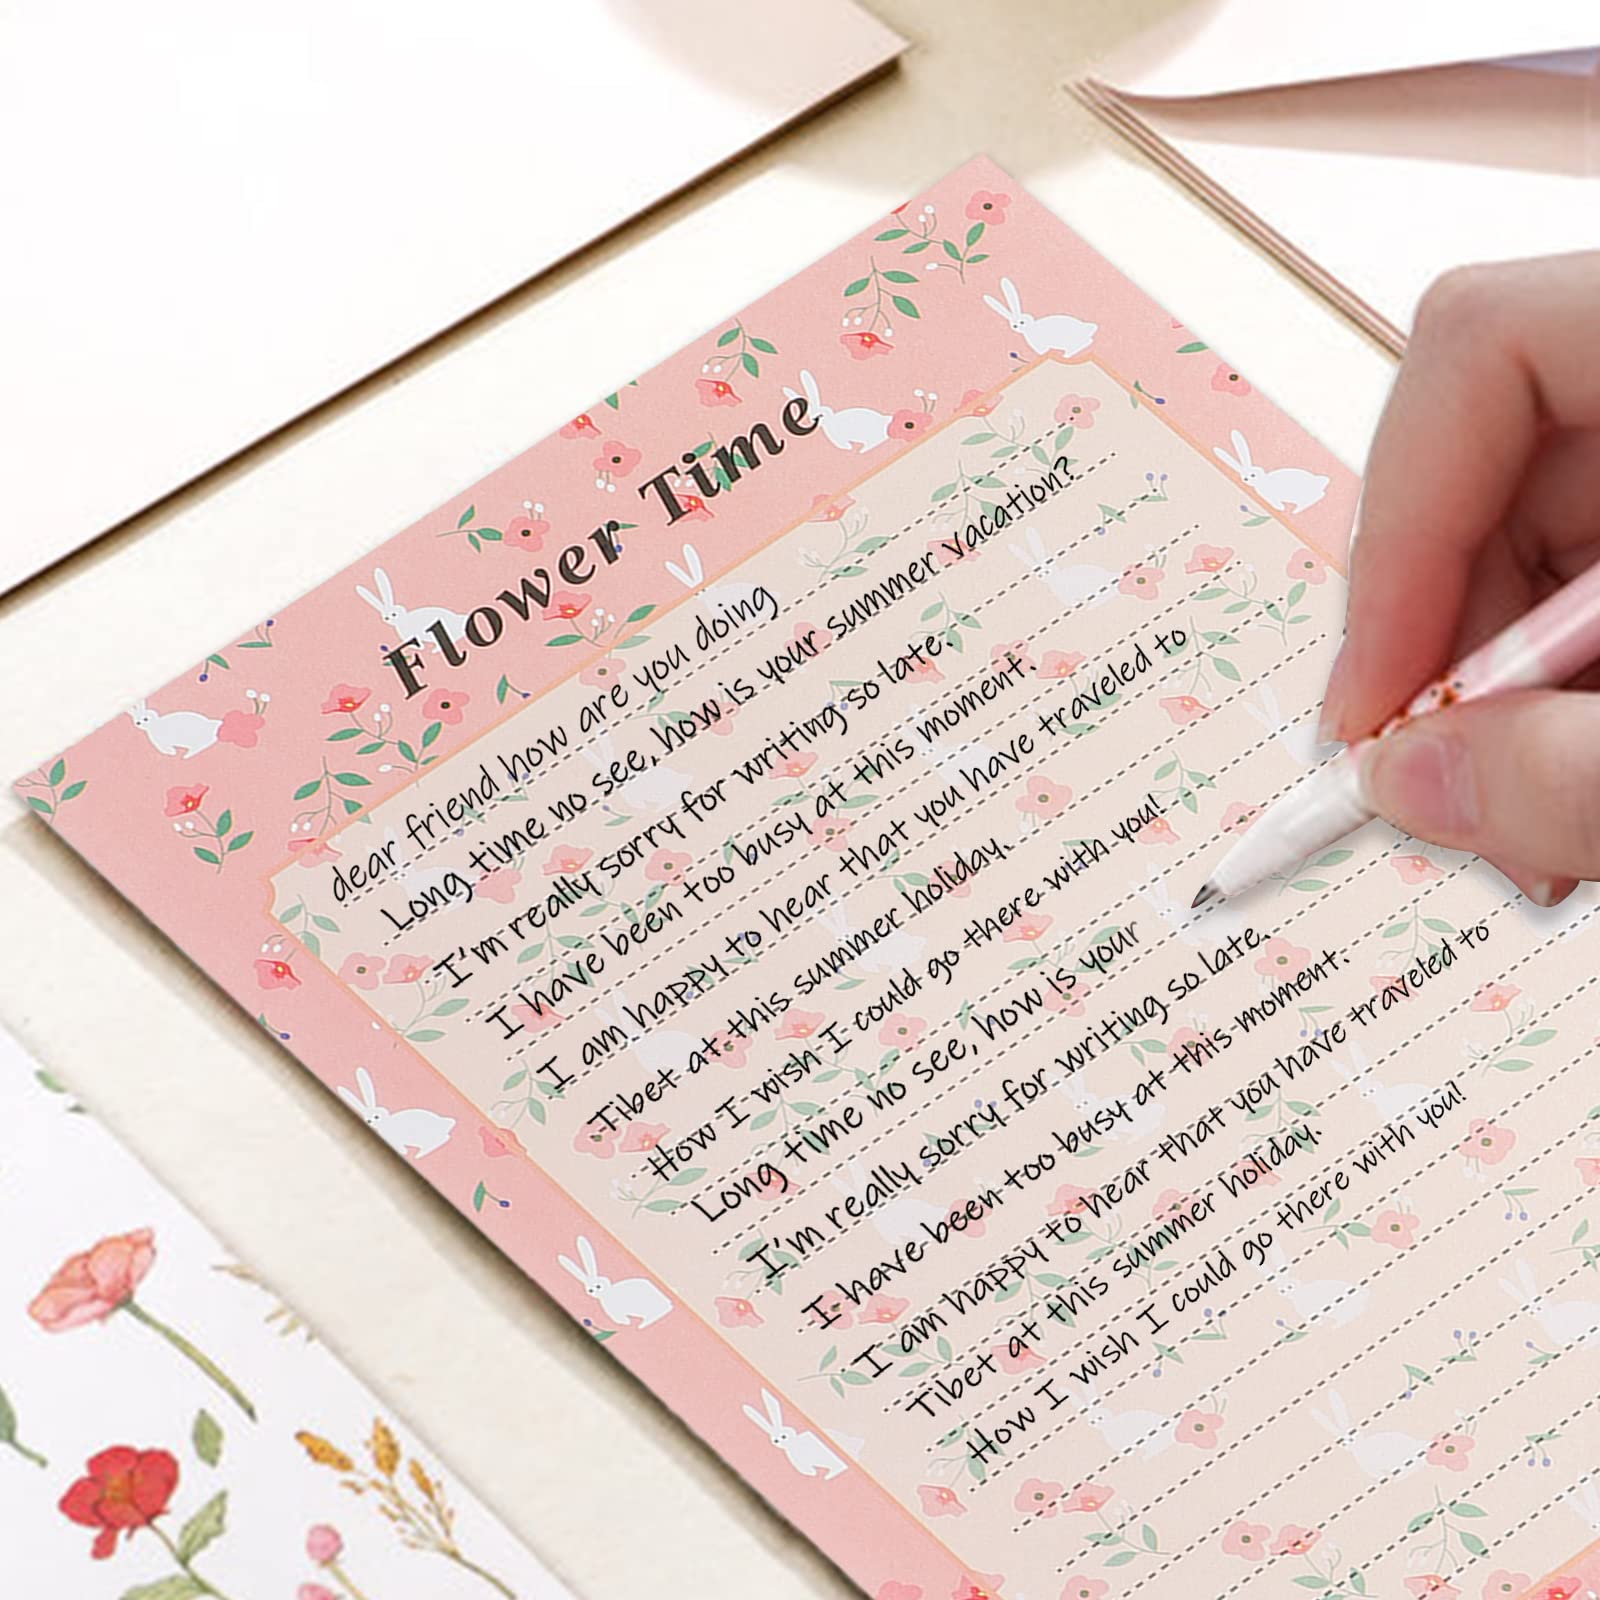 Flower Time
dear friend how are you doing
Long time no see, how is your summer vacation?
I'm really sorry for writing so late.
I have been too busy at this moment.
I am happy to hear that you have traveled to
Tibet at this summer holiday.
How I wish I could go there with you!
Long time no see, how is your
I'm really sorry for writing so late.
I have been too busy at this moment.
I am happy to hear that you have traveled to
Tibet at this summer holiday.
How I wish I could go there with you!